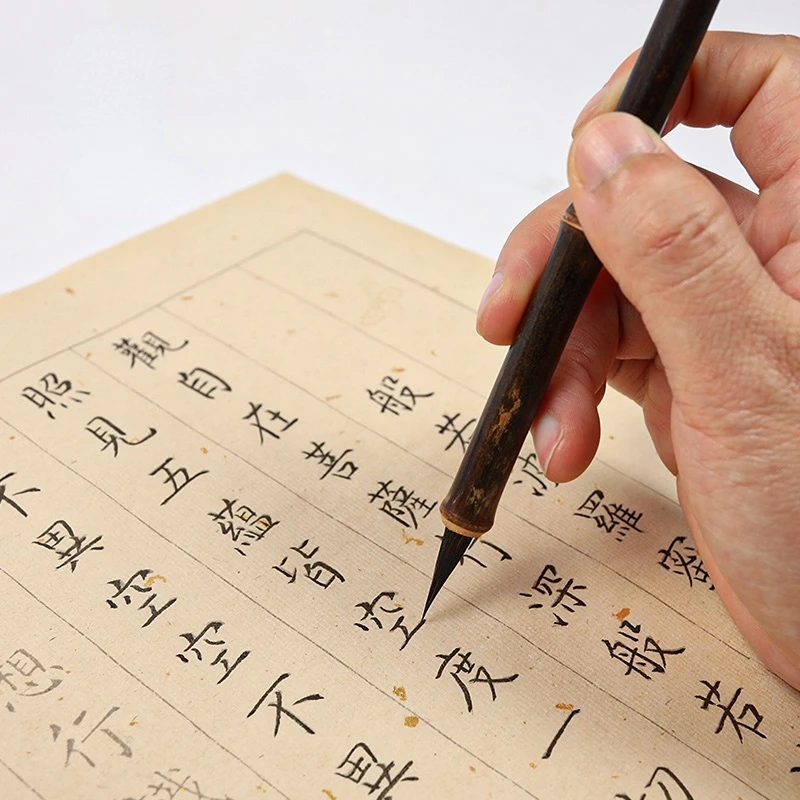 般若波羅蜜
觀自在菩薩行深般若
照見五蘊皆空度一切
不異空空不異
想行識